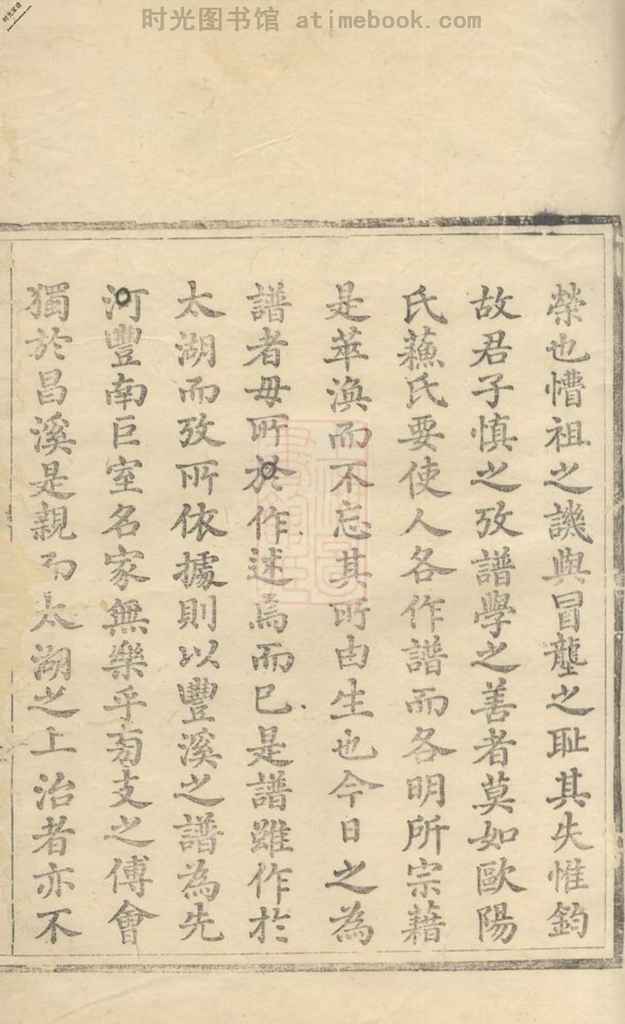 时光图书馆 atimebook.com
榮也慒祖之譏與冒壟之耻其失惟鈞
故君子慎之攷譜學之善者莫如歐陽
氏蘓氏要使人各作譜而各明所宗藉
是萃渙而不忘其所由生也今日之為
譜者毋所於作述焉而已是譜雖作於
太湖而攷所依據則以豐溪之譜為先
河豐南巨室名家無樂乎匄支之傅會
獨於昌溪是親而太湖之上治者亦不